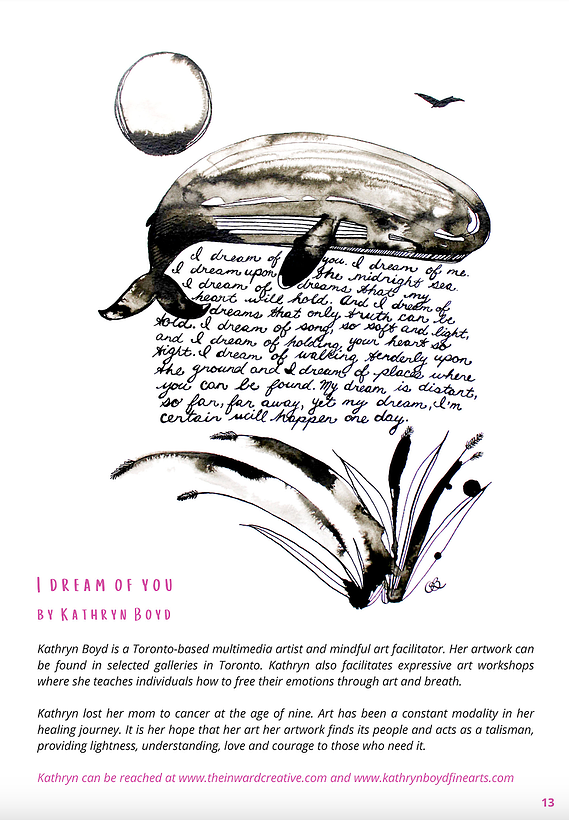 I dream of you. I dream of me.
I dream upon the midnight sea.
I dream of dreams that my
heart will hold. And I dream of
dreams that only truth can be
told. I dream of song, so soft and light,
and I dream of holding your heart so
tight. I dream of walking tenderly upon
the ground and I dream of places where
you can be found. My dream is distant,
so far, far away, yet my dream, I'm
certain will happen one day.
I DREAM OF YOU
BY KATHRYN BOYD
Kathryn Boyd is a Toronto-based multimedia artist and mindful art facilitator. Her artwork can
be found in selected galleries in Toronto. Kathryn also facilitates expressive art workshops
where she teaches individuals how to free their emotions through art and breath.
Kathryn lost her mom to cancer at the age of nine. Art has been a constant modality in her
healing journey. It is her hope that her art her artwork finds its people and acts as a talisman,
providing lightness, understanding, love and courage to those who need it.
Kathryn can be reached at www.theinwardcreative.com and www.kathrynboydfinearts.com
13